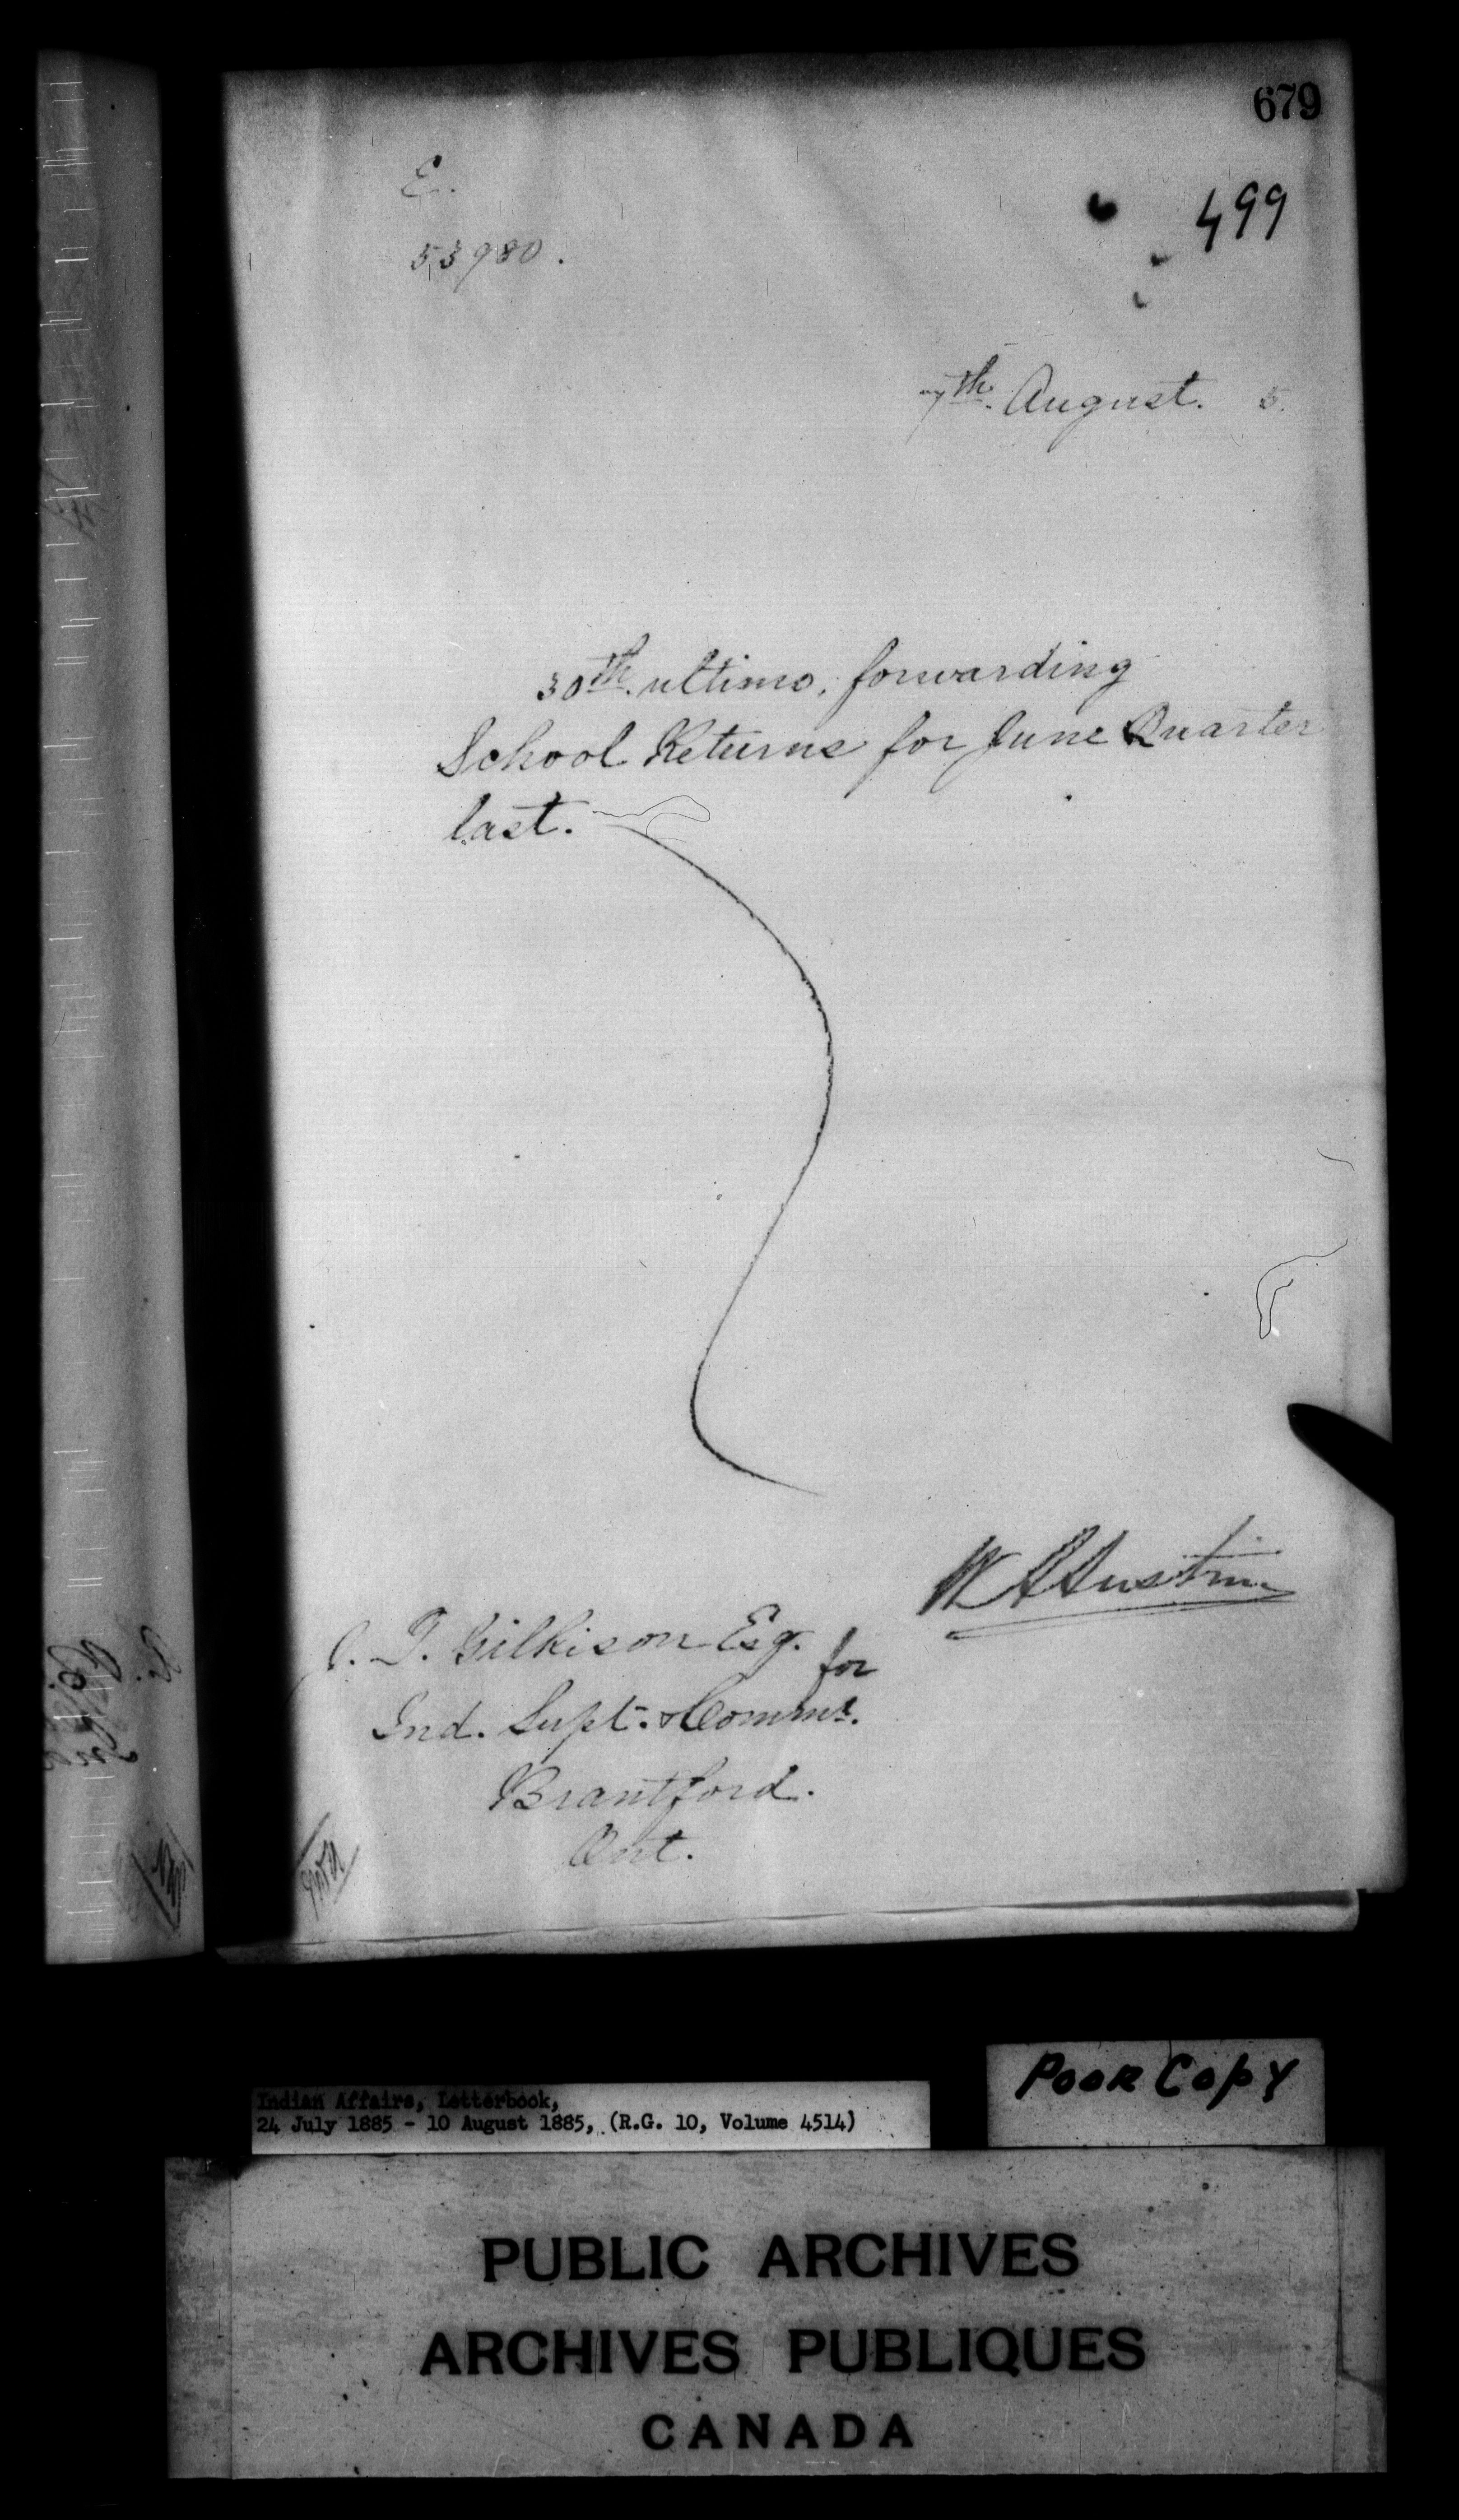 679
E.
499
53980.
7th. August. 5.
30th. ultimo, forwarding
School Returns for June Quarter
last.
W A Austin
J. T. Gilkison Esq.
for
Ind. Supt. & Commr.
Brantford.
Ont.
Poor Copy
Indian Affairs, Letterbook,
24 July 1885 - 10 August 1885, (R.G. 10, Volume 4514)
PUBLIC ARCHIVES
ARCHIVES PUBLIQUES
CANADA